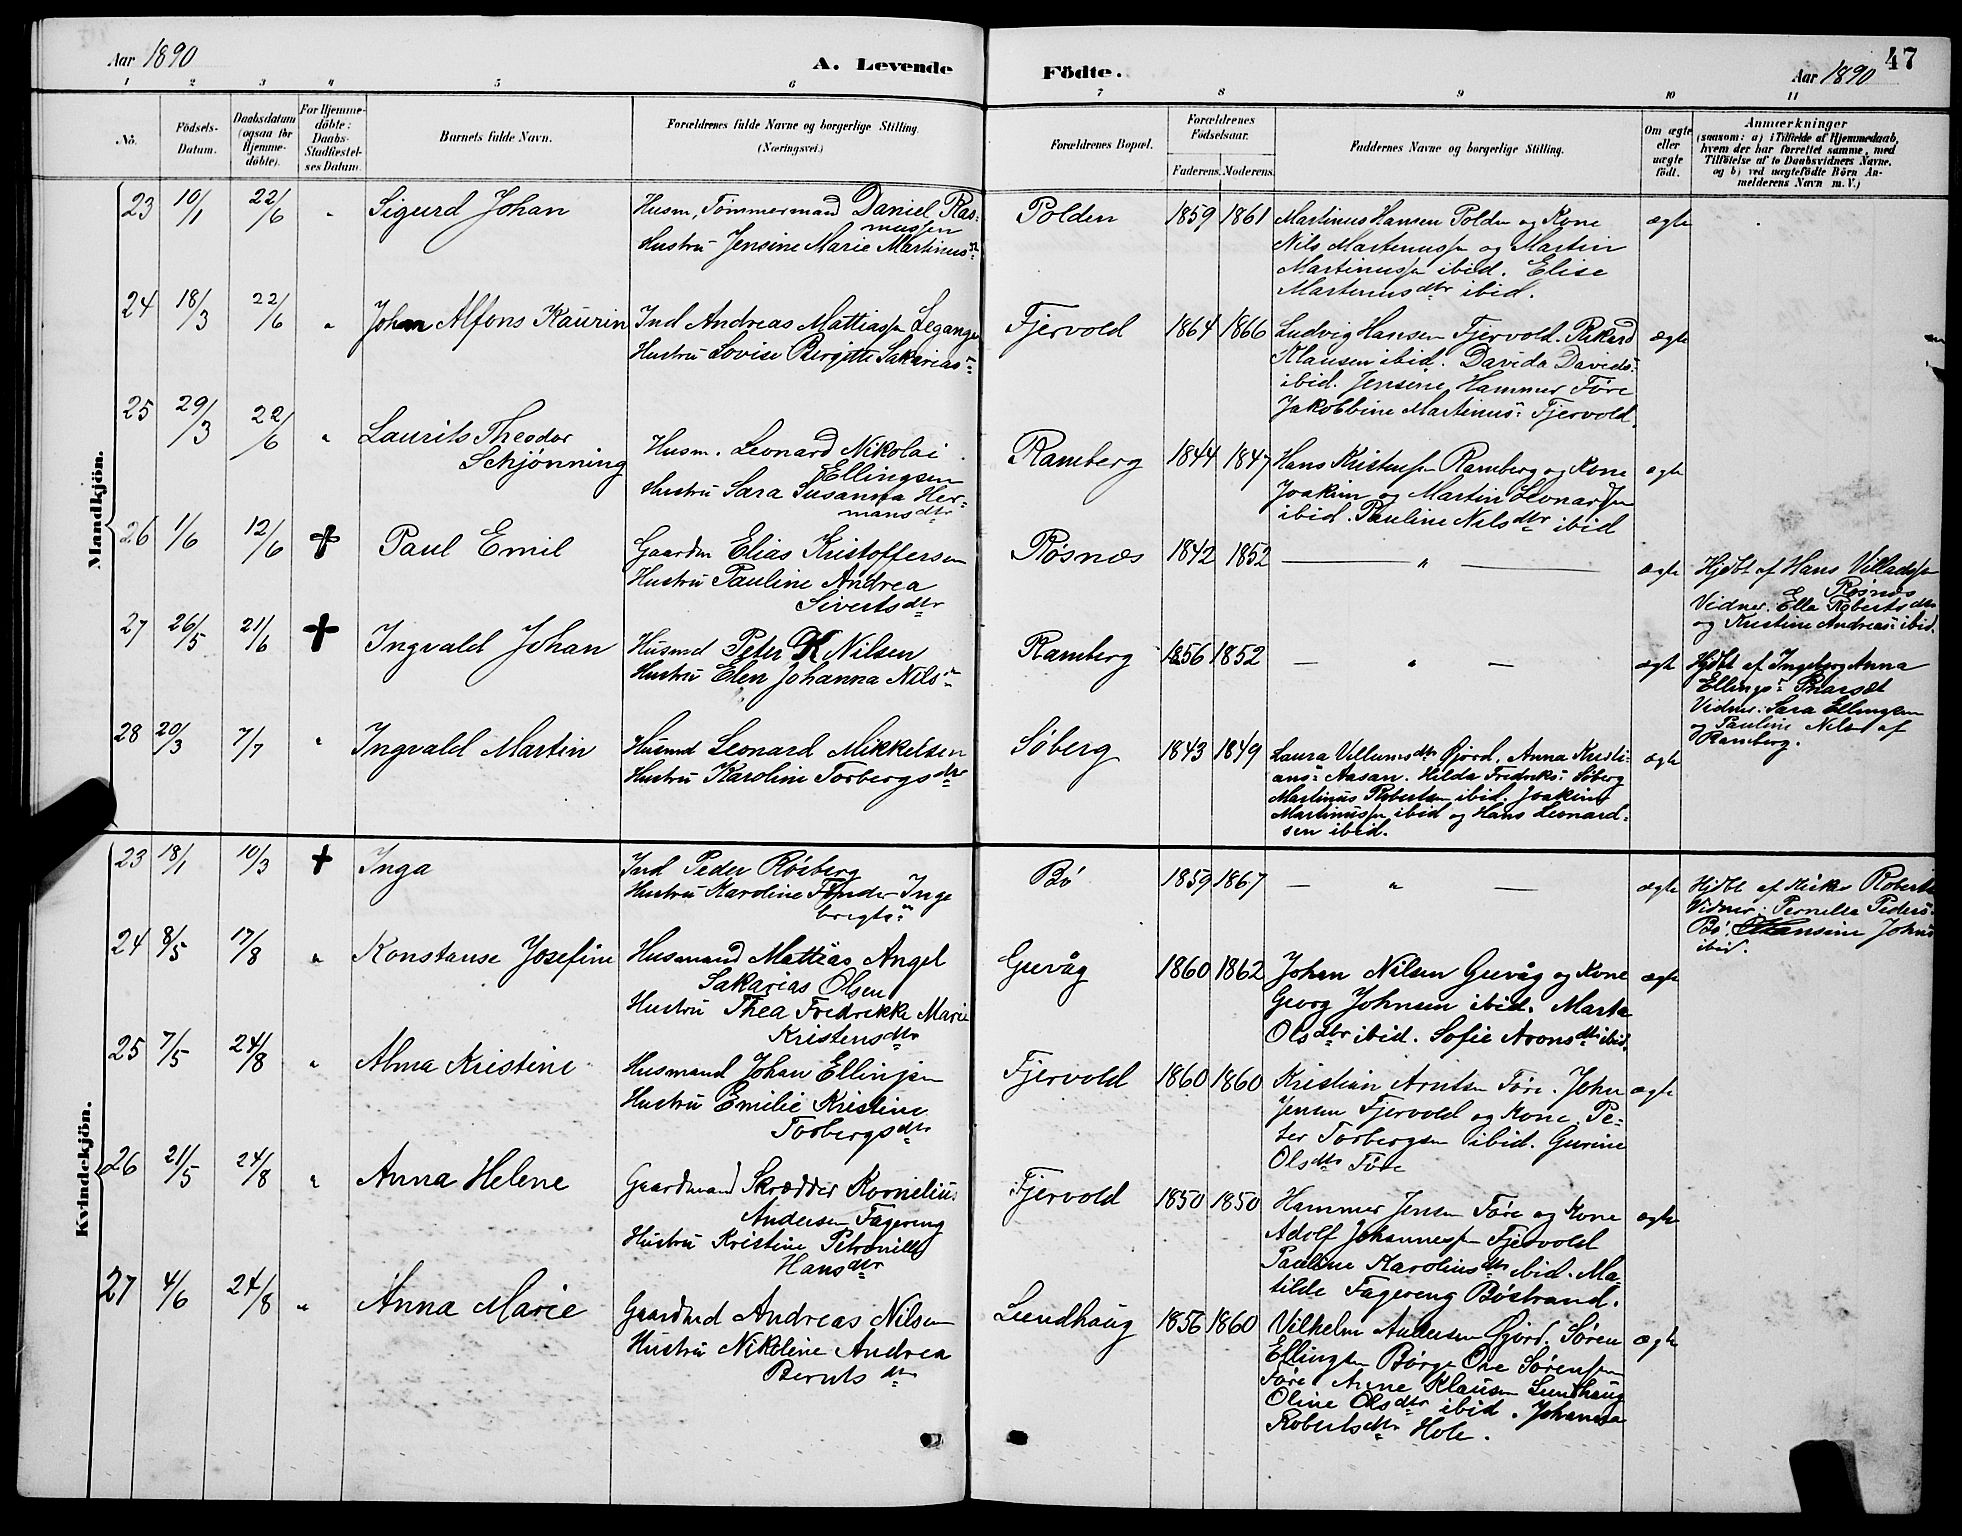 Aar 1890
A. Levende
Födte.
Aar 1890
47
1 2 3 4 5 6 7 8 9 10 11
No.
Födsels-
Datum.
Daabsdatum
(ogsaa for
Hjemme-
döbte).
For Hjemme-
döbte:
Daabs-
Stadfæstel-
ses Datum.
Barnets fulde Navn.
Forældrenes fulde Navne og borgerlige Stilling.
(Næringsvei.)
Forældrenes Bopæl.
Forældrenes
Födselsaar.
Faderens. Moderens.
Faddernes Navne og borgerlige Stilling.
Om ægte
eller
uægte
födt.
Anmærkninger
(saasom: a) i Tilfælde af Hjemmedaab,
hvem der har forrettet samme, med
Tilföielse af to Daabsvidners Navne,
og b) ved uægtefödte Börn An-
melderens Navn m. V.)
Mandkjön.
23 10/1 22/6 " Sigurd Johan
Husm, Tømmermand Daniel Ras-
mussen
Hustru Jensine Marie Martinusdr
Polden 1859 1861
Martinus Hansen Polden og Kone
Nils Martinussen og Martin
Martinussen ibid. Elise
Martinusdtr ibid.
ægte
24 18/3 22/6 " Johan Alfons Kaurin
Ind Andreas Mattiassen Leganger
Hustru Lovise Birgitte Sakarias"
Fjervold 1864 1866
Ludvig Hansen Fjervold. Rikard
Klausen ibid. Davida Davids"
ibid. Jensine Hammer Före
Jakobbine Martinus" Fjervold.
ægte
25 29/3 22/6 " Laurits Theodor
Schjønning
Husm. Leonard Nikolai
Ellingsen
Hustru Sara Susanna Her-
mansdtr
Ramberg 1844 1847
Hans Kristensen Ramberg og Kone
Joakim og Martin Leonardsen
ibid. Pauline Nilsdtr ibid
ægte
26 1/6 12/6 ✝ Paul Emil
Gaardm Elias Kristoffersen
Hustru Pauline Andrea
Sivertsdtr
Røsnæs 1842 1852
— " —
ægte
Hjdbt af Hans Villadsen
Røsnæs
Vidner. Ella Robertsdtr
og Kristine Andreas" ibid.
27 26/5 21/6 ✝ Ingvald Johan
Husmd Peter K Nilsen
Hustru Elen Johanna Nils"
Ramberg 1856 1852
— " —
ægte
Hjdbt af Ingeborg Anna
Ellings" Snarset
Vidner: Sara Ellingsen
og Pauline Nilsd af
Ramberg.
28 20/3 7/7 " Ingvald Martin
Husmd Leonard Mikkelsen
Hustru Karoline Torbergsdtr
Søberg 1843 1849
Laura Villumsdtr Gjørd. Anna Kristi-
ans" Aasan. Hilda Fredriks" Søberg
Martinus Robertsen ibid. Joakim
Martinussen ibid og Hans Leonard-
sen ibid.
ægte
Kvindekjön.
23 18/1 10/3 ✝ Inga
Ind Peder Røsberg
Hustru Karoline Inge
brigts"
Bø 1859 1867
— " —
ægte
Hjdbt af Roberts
Vidner: Pernille Peders"
Bø. Hansine Johns
ibid.
24 8/5 17/8 " Konstanse Josefine
Husmand Mattias Angel
Sakarias Olsen
Hustru Thea Fredrikke Marie
Kristensdtr
Guvåg 1860 1862
Johan Nilsen Guvåg og Kone
Georg Johnsen ibid. Marta
Olsdtr ibid. Sofie Aronsdtr ibid.
ægte
25 7/5 24/8 " Alma Kristine
Husmand Johan Ellingsen
Hustru Emilie Kristine
Torbergsdtr
Fjervold 1860 1860
Kristian Arntsen Føre. John
Jensen Fjervold og Kone. Pe-
ter Torbergsen ibid. Gurine
Olsdtr Føre
ægte
26 21/5 24/8 " Anna Helene
Gaardmand Skrædder Kornelius
Andersen Fagereng
Hustru Kristine Petronille
Hansdtr
Fjervold 1850 1850
Hammer Jensen Føre og Kone
Adolf Johannessen Fjervold
Pauline Karoliusdtr ibid. Ma-
tilde Fagereng Bøstrand.
ægte
27 4/6 24/8 " Anna Marie
Gaardmd Andreas Nilsen
Hustru Nikoline Andrea
Berntsdtr
Lundhaug 1856 1860
Vilhelm Andersen Gjørd. Søren
Ellingsen Børge Ove Sørensen
Føre Arne Klausen Lundhaug
Oline Olsdtr ibid. Johanna
Robertsdtr Hole.
ægte